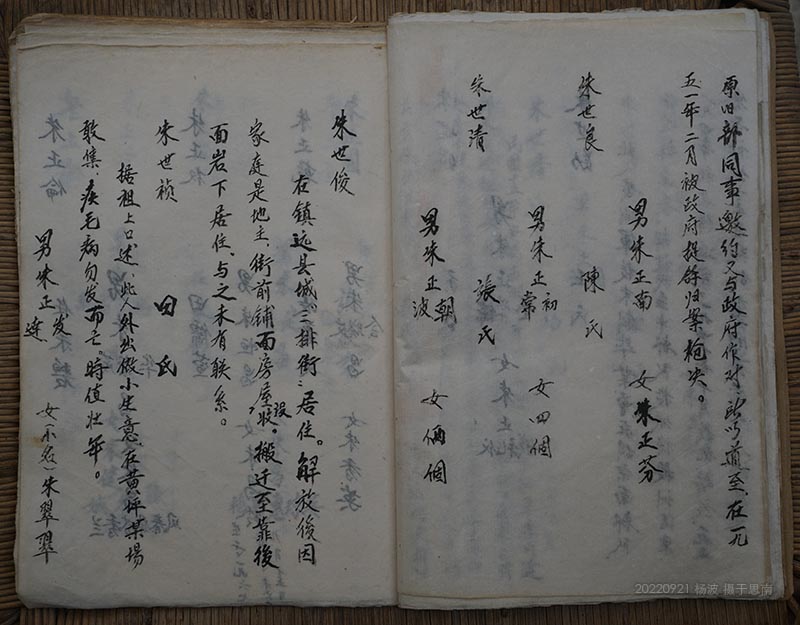 原旧部同事邀约又与政府作对，所以道至，在一九
五一年二月被政府捉锝归案枪决。
男朱正南 女朱正芬
朱世良 陳氏
男朱正常 初 女四個
朱世清 張氏
男朱正波 朝 女俩個
朱世俊
在镇远县城“三排街”居住。解放後因
家庭是地主，街前铺面房屋没收。搬迁至靠後
面岩下居住，与之未有联系。
朱世祯 田氏
据祖上口述，此人外出做小生意，在黄坪某场
敢集，疾毛病勿发而亡，時值壮年。
男朱正发 達 女（小名）朱翠翠
20220921 杨波 摄于思南